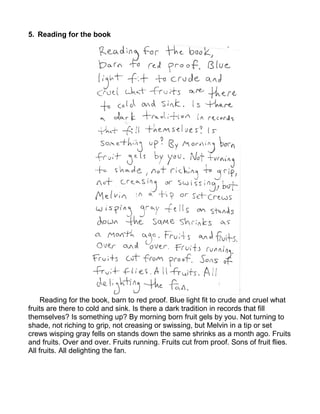 5. Reading for the book
Reading for the book,
barn to red proof. Blue
light fit to crude and
cruel what fruits are there
to cold and sink. Is there
a dark tradition in records
that fill themselves? Is
something up? By morning born
fruit gels by you. Not turning
to shade, not riching to grip,
not creasing or swissing, but
Melvin in a tip or set crews
wisping gray fells on stands
down the same shrinks as
a month ago. Fruits and fruits.
Over and over. Fruits running.
Fruits cut from proof. Sons of
fruit flies. All fruits. All
delighting the fan.
Reading for the book, barn to red proof. Blue light fit to crude and cruel what
fruits are there to cold and sink. Is there a dark tradition in records that fill
themselves? Is something up? By morning born fruit gels by you. Not turning to
shade, not riching to grip, not creasing or swissing, but Melvin in a tip or set
crews wisping gray fells on stands down the same shrinks as a month ago. Fruits
and fruits. Over and over. Fruits running. Fruits cut from proof. Sons of fruit flies.
All fruits. All delighting the fan.